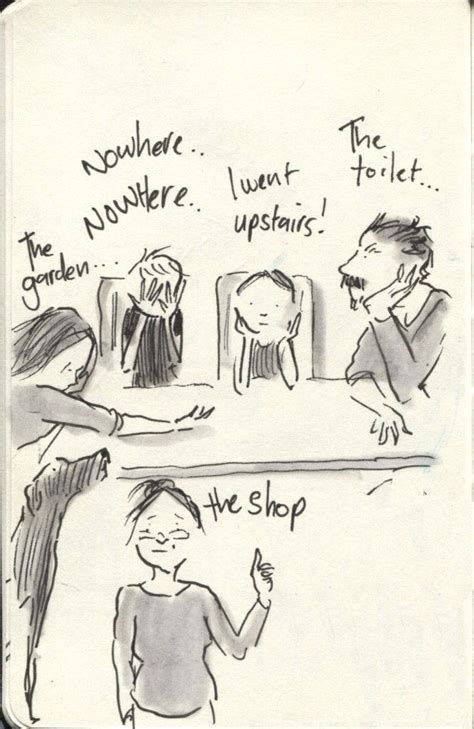 Nowhere..
NowHere..
I went
upstairs!
The
toilet...
The
garden...
the shop